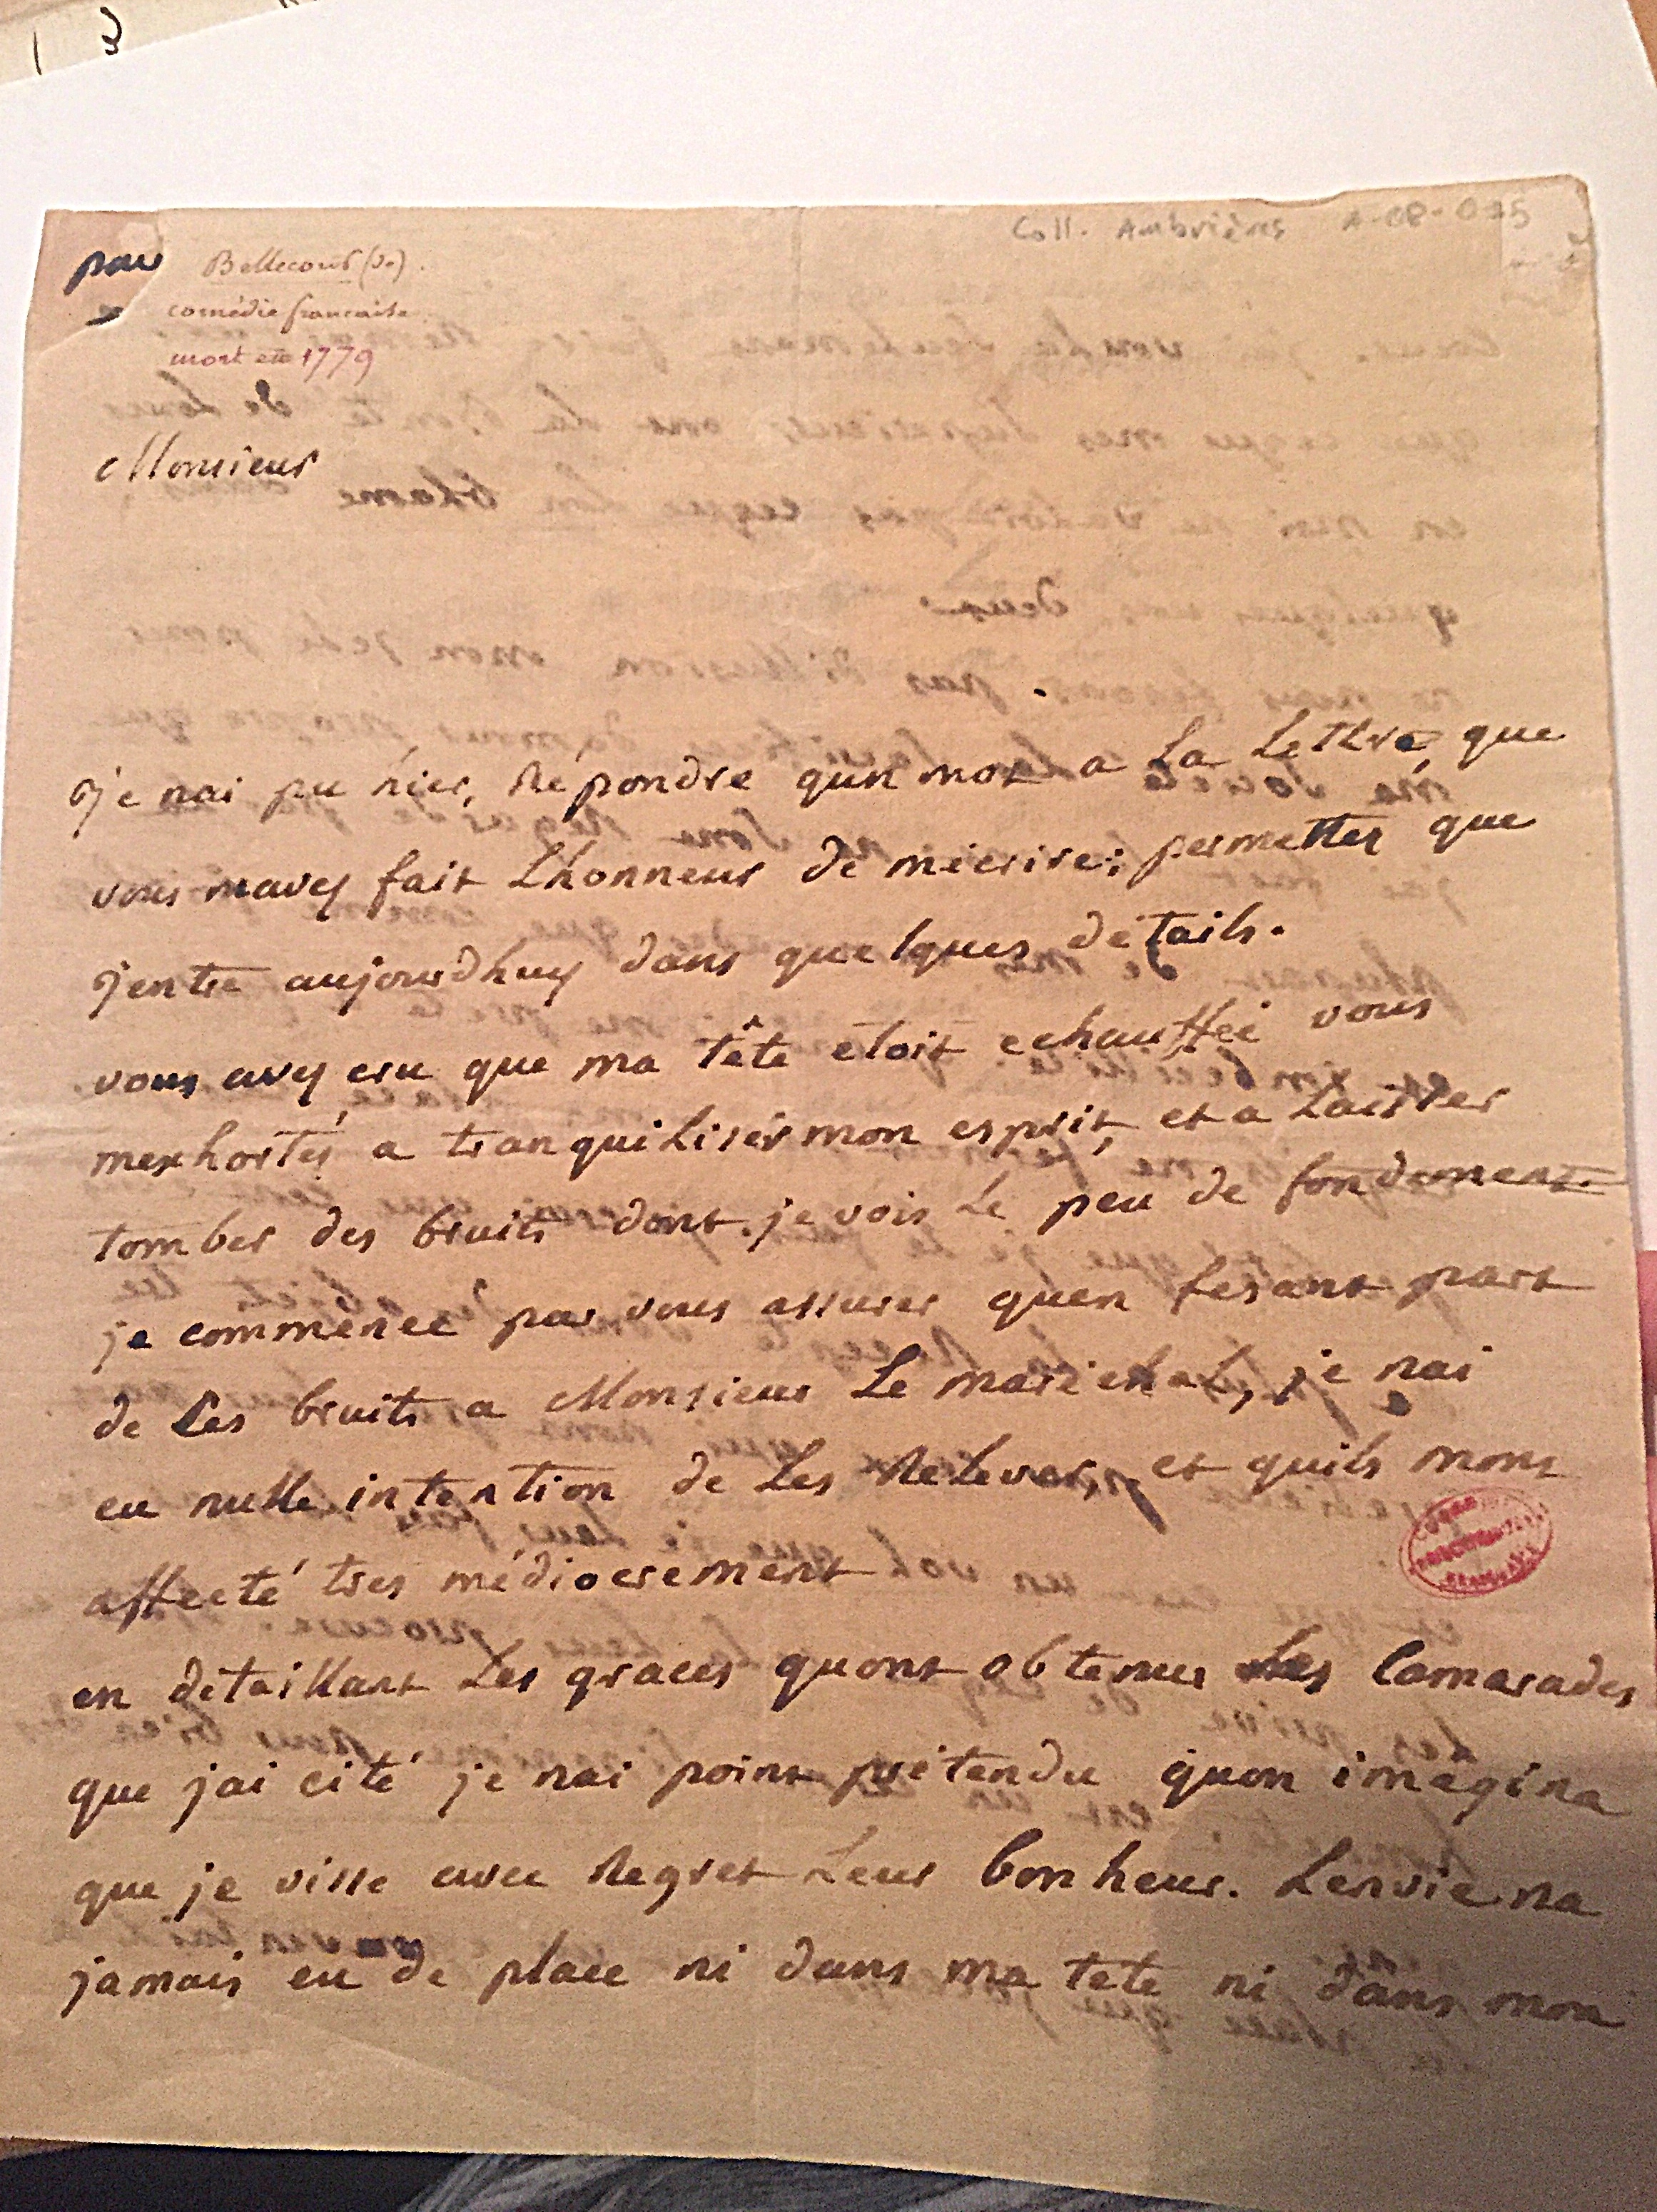 Coll. Ambrières A-08-015
pour
Bellecour (de).
comédie française
mort en 1779
Monsieur
je nai pu hier, répondre qun mot a la lettre, que
vous mavez fait Lhonneur de mécrire; permettez que
jentre aujourdhuy dans quelques détails.
vous avez cru que ma tête etoit echauffée vous
mexhortés a tranquiliser mon esprit, et a laisser
tomber des bruits dont je vois le peu de fondement
je commence par vous assurer quen fesant part
de ces bruits a Monsieur Le maréchal, je nai
eu nulle intention de Les Relever, et quils mont
affecté tres médiocrement
en détaillant Les graces quont obtenues Les Camarades
que jai cité je nai point prétendu quon imagina
que je visse avec Regret Leur bonheur. Lenvie na
jamais eu de place ni dans ma tete ni dans mon